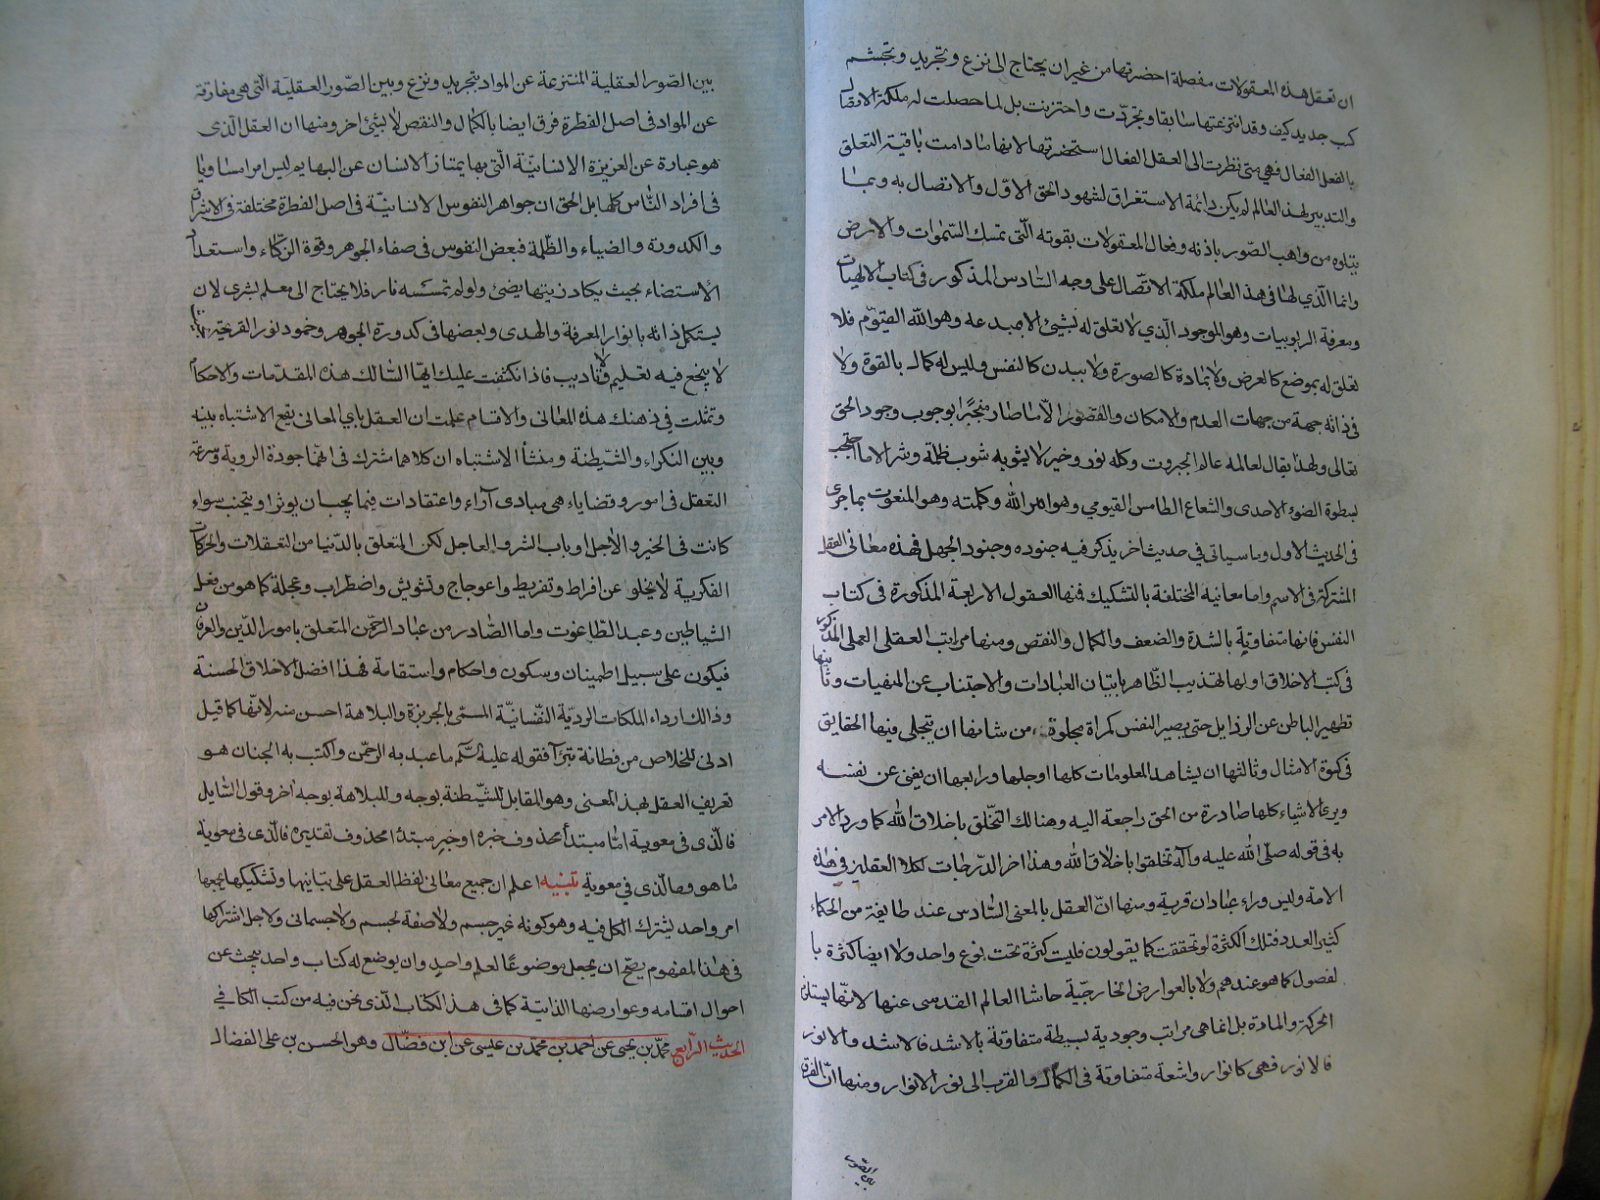 ان تعقل هذه المعقولات مفصلة احضرتها من غير ان يحتاج الى نزع وتجريد وتجشم
كسب جديد كيف وقد انتزعتها سابقا وتجردت واحترنت بل لما حصلت له ملكة الاتصال
بالفعل الفعال فهي متى نظرت الى العقل الفعال استحضرتها لانها ما دامت باقية التعلق
والتدبير لهذا العالم لم يكن دائمة الاستغراق لشهود الحق الاول والاتصال به وبما
يتلوه من واهب الصور باذنه وفعال المعقولات بقوته التى تمسك السموات والارض
وانما الذي لها في هذا العالم ملكة الاتصال على وجه السادس المذكور في كتاب الالهيات
ومعرفة الربوبيات وهو الموجود الذي لا تعلق له بشئ الا مبدعه وهو الله القيوم فلا
تعلق له بموضع كالعرض ولا بمادة كالصورة ولا ببدن كالنفس وليس له كمال بالقوة ولا
في ذاته جهة من جهات العدم والامكان والقصور الا ما صار منجبرا بوجوب وجود الحق
تعالى ولهذا يقال لعالمه عالم الجبروت وكله نور وخير لا يشوبه شوب ظلمة وشر الا ما احتجب
بسطوة الضوء الاحدى والشعاع الطامس القيومي وهو امر الله وكلمته وهو المنعوت بما جرى
فى الحديث الاول وما سياتي في حديث اخر يذكر فيه جنوده وجنود الجهل فهذه معانى العقل
المشتركة فى الاسم واما معانيه المختلفة بالتشكيك فمنها العقول الاربعة المذكورة فى كتاب
النفس فانها متفاوتة بالشدة والضعف والكمال والنقص ومنها مراتب العقل العملى المذكور
فى كتب الاخلاق اولها تهذيب الظاهر باتيان العبادات والاجتناب عن المنهيات وثانيها
تطهير الباطن عن الرذايل حتى يصير النفس كمراة مجلوة من شانها ان يتجلى فيها الحقايق
فى كسوة الامثال وثالثها ان يشاهد المعلومات كلها او جلها ورابعها ان يفنى عن نفسه
ويرى الاشياء كلها صادرة من الحق راجعة اليه وهنالك التخلق باخلاق الله كما ورد الامر
به فى قوله صلى الله عليه وآله تخلقوا باخلاق الله وهذا اخر الدرجات لكلا العقلين في هذه
الامة وليس وراء عبادان قرية ومنها ان العقل بالمعنى السادس عند طايفة من الحكماء
كثير العدد فتلك الكثرة لو تحققت كما يقولون فليت كثرة تحت نوع واحد ولا ايضا كثرة با
لفصول كما هو عندهم ولا بالعوارض الخارجية حاشا العالم القدسى عنها لانها يستلزم
الحركة والمادة بل انما هى مراتب وجودية بسيطة متفاوتة بالاشد فالاشد والانور
فالانور فهى كانوار واشعة متفاوتة فى الكمال والقرب الى نور الانوار ومنها ان الفرق
بين الصور
بين الصور العقلية المنتزعة عن المواد بتجريد ونزع وبين الصور العقلية التى هى مفارقة
عن المواد فى اصل الفطرة فرق ايضا بالكمال والنقص لا بشئ اخر ومنها ان العقل الذى
هو عبارة عن الغريزة الانسانية التى بها يمتاز الانسان عن البهايم ليس امرا متساويا
فى افراد الناس كلها بل الحق ان جواهر النفوس الانسانية فى اصل الفطرة مختلفة فى الاشراق
والكدورة والضياء والظلمة فبعض النفوس فى صفاء الجوهر وقوة الذكاء واستعداد
الاستضاء بحيث يكاد زيتها يضئ ولو لم تمسسه نار فلا يحتاج الى معلم بشرى لان
يستكمل ذاته بانوار المعرفة والهدى وبعضها فى كدورة الجوهر وخمود نور القريحة بحيث
لا ينجع فيه تعليم ولا تاديب فاذا تكشفت عليك ايها السالك هذه المقدمات والاحكام
وتمثلت في ذهنك هذه المعانى والاقسام علمت ان العقل باي المعانى يقع الاشتباه بينه
وبين النكراء والشيطنة ومنشأ الاشتباه ان كلاهما مشترك فى انهما جودة الروية وسرعة
التعقل فى امور وقضايا هى مبادى آراء واعتقادات فيما يجب ان يوثر او يتجنب سواء
كانت فى الخير والاجل او باب الشر والعاجل لكن المتعلق بالدنيا من التعقلات والحركات
الفكرية لا يخلو عن افراط وتفريط واعوجاج وتشويش واضطراب وعجلة كما هو من فعل
الشياطين وعبد الطاغوت واما الصادر من عباد الرحمن المتعلق بامور الدين والعرفان
فيكون على سبيل اطمينان وسكون واحكام واستقامة فهذا افضل الاخلاق الحسنة
وذالك ارداء الملكات الردية النفسانية المسمى بالجربزة والبلاهة احسن منه لانها كما قيل
ادنى للخلاص من فطانة بترآ فقوله عليه السلم ما عبد به الرحمن واكتب به الجنان هو
تعريف العقل بهذا المعنى وهو المقابل للشيطنة بوجه والبلاهة بوجه اخر وقول السايل
فالذى فى معوية اما مبتدأ محذوف خبره او خبر مبتدا محذوف تقديره فالذى فى معوية
ما هو وما الذى فى معوية تنبيه اعلم ان جميع معانى لفظ العقل على تباينها وتشكيكها يجمعها
امر واحد يشترك الكل فيه وهو كونه غير جسم ولا صفة لجسم ولا جسمانى ولاجل اشتراكها
فى هذا المفهوم يصح ان يجعل موضوعا لعلم واحد وان يوضع له كتاب واحد يبحث عن
احوال اقسامه وعوارضها الذاتية كما فى هذا الكتاب الذى نحن فيه من كتب الكافي
الحديث الرابع محمد بن يحيى عن احمد بن محمد بن عيسى عن ابن فضال وهو الحسن بن على الفضال